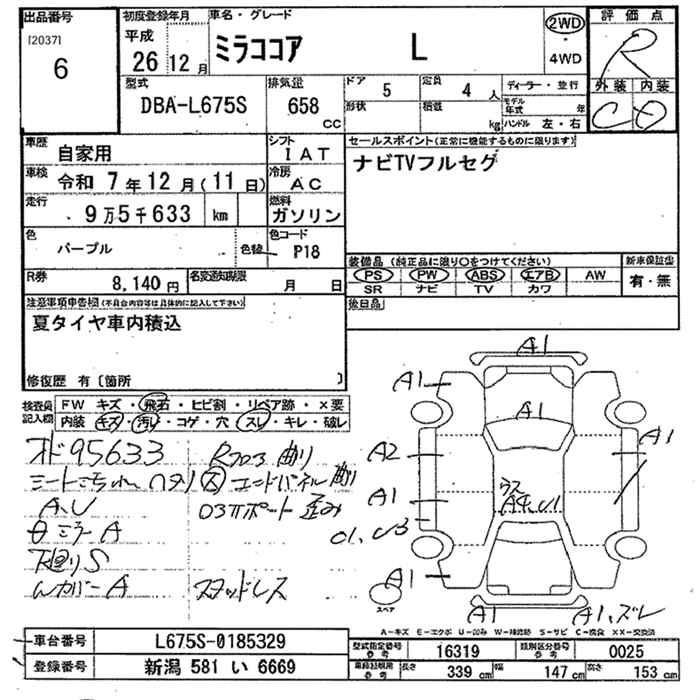 出品番号 初度登録年月 車名・グレード 2WD 評価点
[2037] 平成
6 26 12月 ミラココア L 4WD R
型式 排気量 ドア 5 定員 4人 ディーラー・並行 外装 内装
DBA-L675S 658 CC 形状 積載 kg モデル年式 年 C D
ハンドル 左・右
車歴 自家用 シフト IAT セールスポイント(正常に機能するものに限ります)
車検 令和 7年12月(11日) 冷房 AC ナビTVフルセグ
走行 9万5千633 km 燃料 ガソリン
色 パープル 色替 色コード P18
装備品 (純正品に限り○をつけてください) 新車保証書
R券 8,140円 名変通知期限 月 日 PS PW ABS エアB AW 有・無
SR ナビ TV カワ
注意事項申告欄(不具合内容等は具体的に記入して下さい) 後日品
夏タイヤ車内積込
修復歴 有〔箇所 〕
検査員記入欄 FW キズ・飛石・ヒビ割・リペア跡・×要
内装 キズ・汚れ・コゲ・穴・スレ・キレ・破レ
95633
A.U
ミラー A
S
カバー A スタッドレス
A1
A1
A1
A2
A1
A1
A4.U1
A1
スペア
A1
A1,ズレ
A=キズ E=エクボ U=凹み W=補修跡 S=サビ C=腐食 XX=交換済
車台番号 L675S-0185329 型式指定番号 参考 16319 類別区分番号 参考 0025
登録番号 新潟 581 い 6669 長さ 339 cm 幅 147 cm 高さ 153 cm